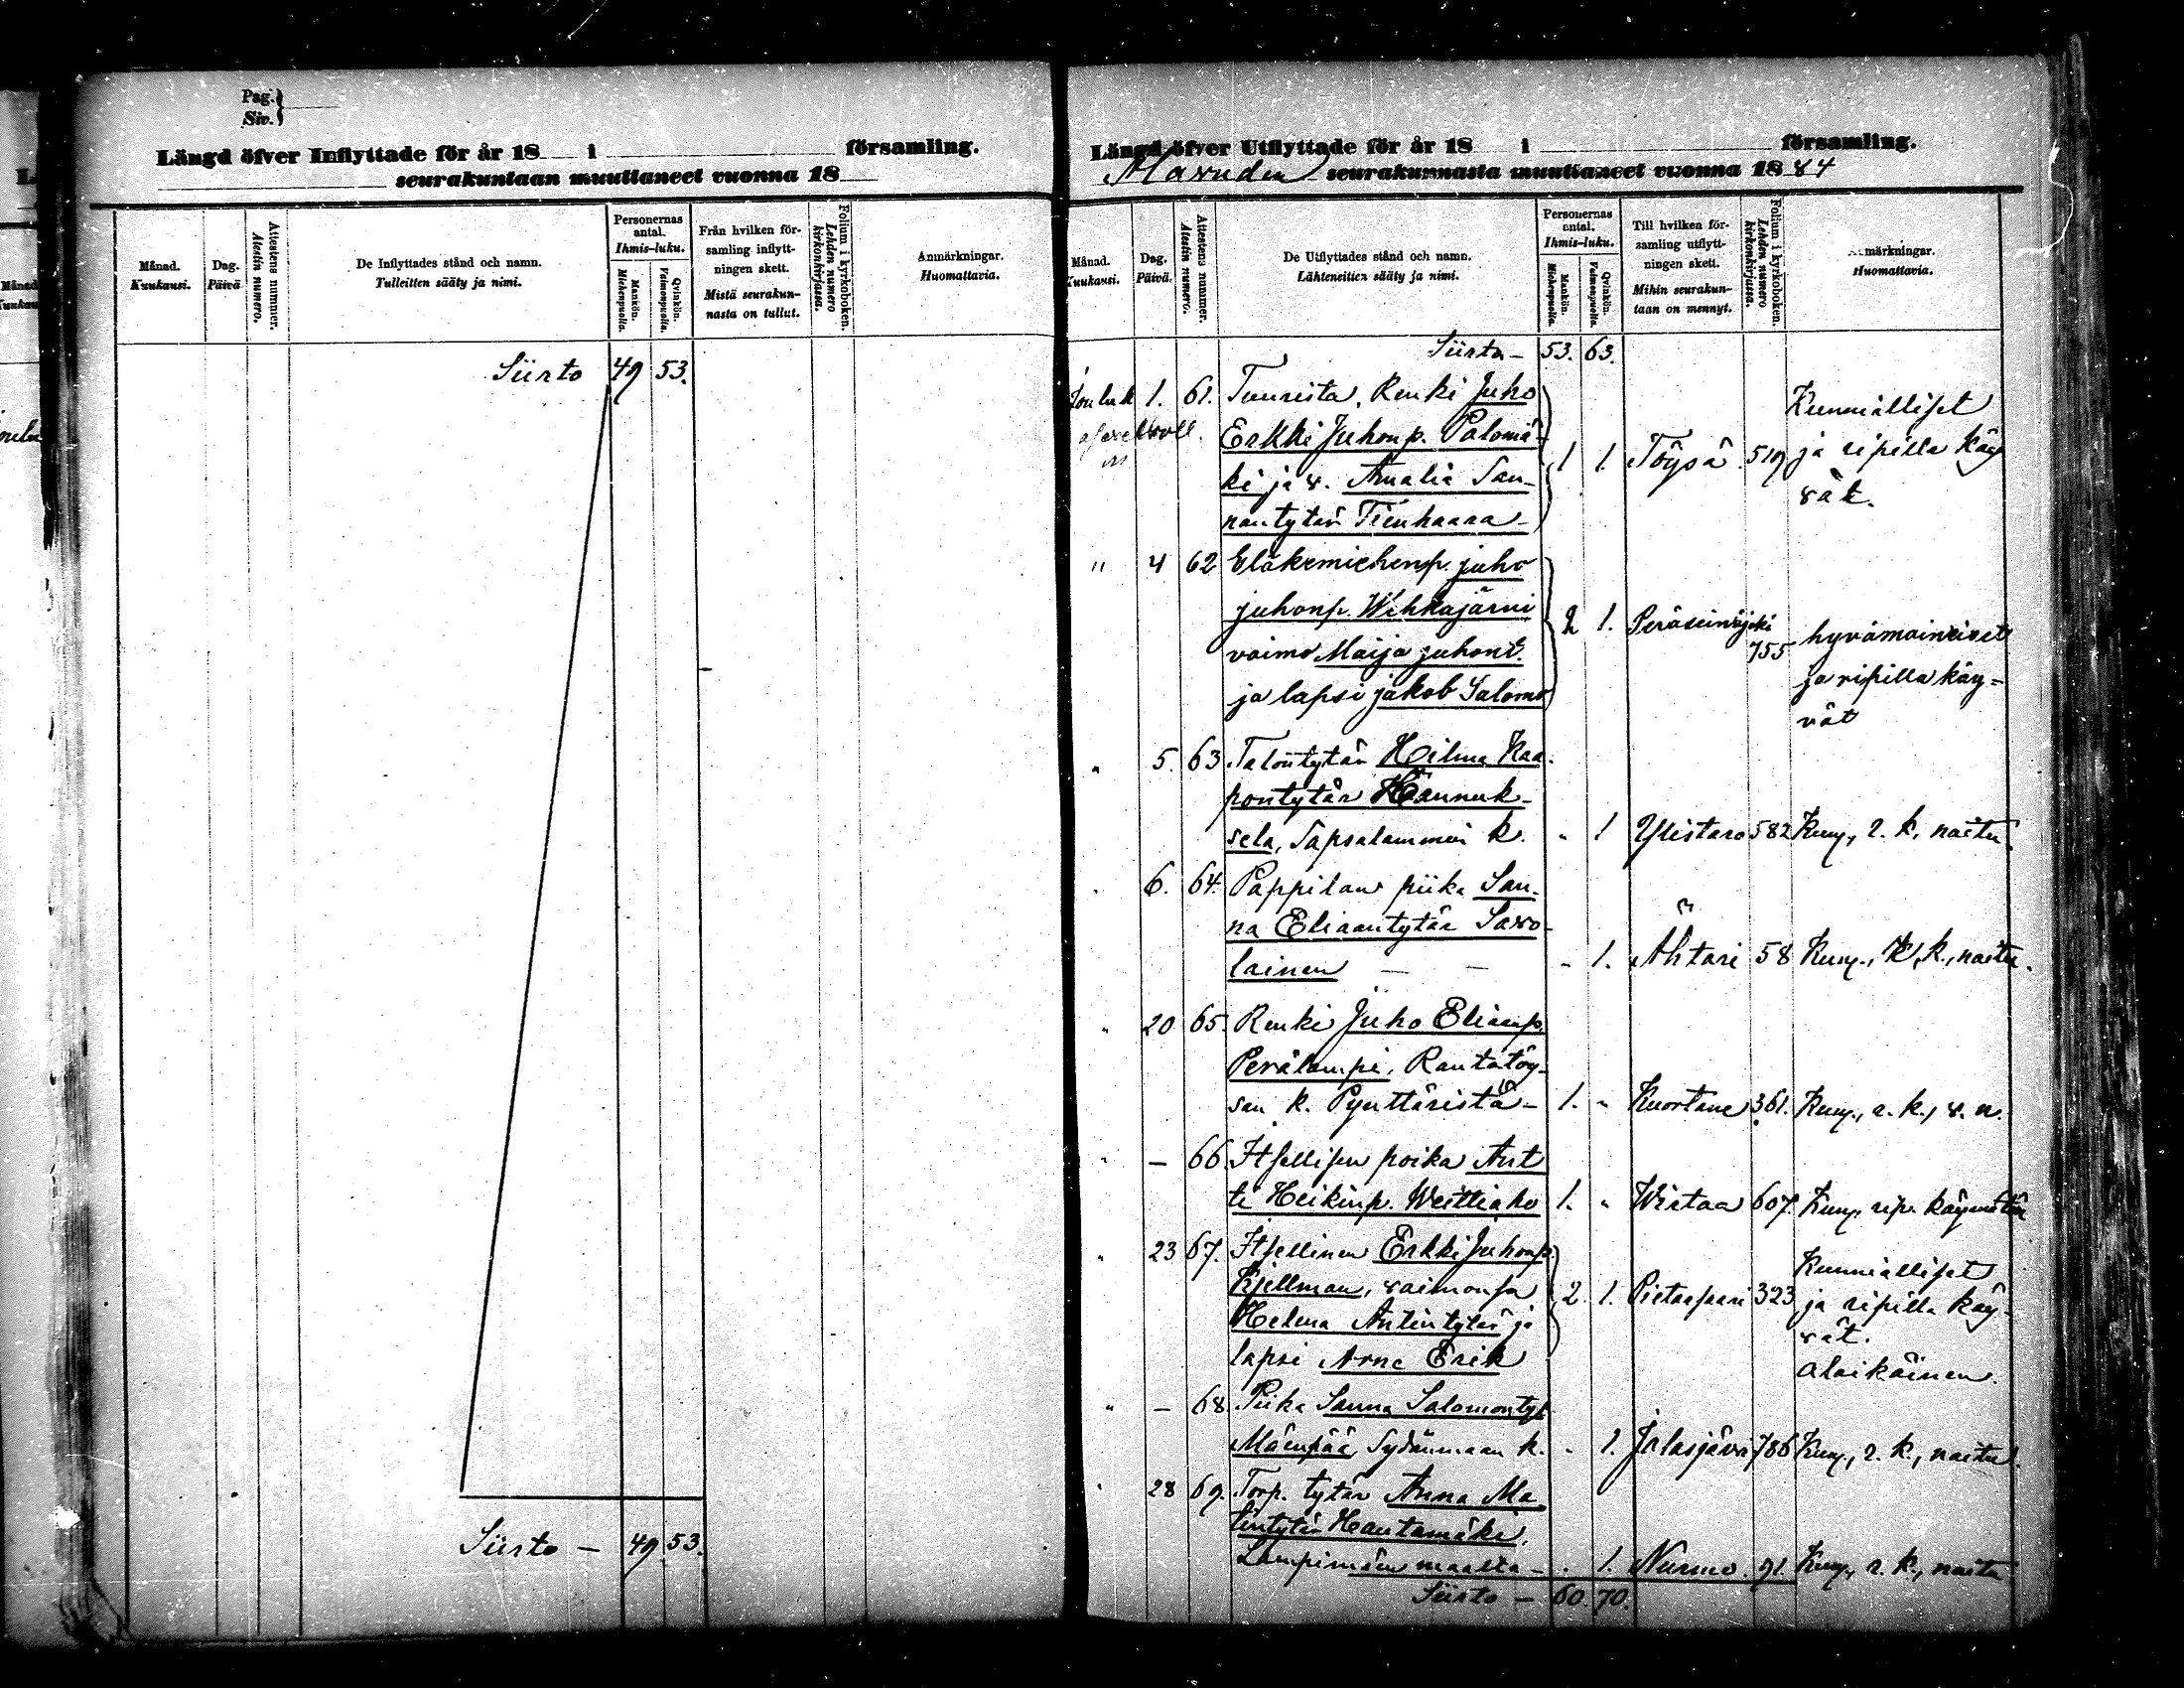 Pag.
Siv.
Längd öfver Inflyttade för år 18 i församling.
seurakuntaan muuttaneet vuonna 18
Månad. Kuukausi.
Dag. Päivä
Attestens nummer. Atestin numero.
De Inflyttades stånd och namn.
Tulleitten sääty ja nimi.
Personernas antal. Ihmis-luku.
Mankön. Miehenpuolia.
Qvinkön. Vaimonpuolia.
Från hvilken för-
samling inflytt-
ningen skett.
Mistä seurakun-
nasta on tullut.
Folium i kyrkoboken. Lehden numero kirkonkirjassa.
Anmärkningar.
Huomattavia.
Siirto 49 53.
Siirto — 49 53.
Längd öfver Utflyttade för år 18 i församling.
Alavuden seurakunnasta muuttaneet vuonna 1884
Månad. Kuukausi.
Dag. Päivä.
Attestens nummer. Atestin numero.
De Utflyttades stånd och namn.
Lähteneitten sääty ja nimi.
Personernas antal. Ihmis-luku.
Mankön. Miehenpuolia.
Qvinkön. Vaimonpuolia.
Till hvilken för-
samling utflytt-
ningen skett.
Mihin seurakun-
taan on mennyt.
Folium i kyrkoboken. Lehden numero kirkonkirjassa.
märkningar.
Huomattavia.
Siirto — 53. 63.
Jouluk 1. 61. Tuurista, Renki Juho Kunnialliset
Erkki Juhonp. Palomä-
ki ja v. Amalia San- 1 1. Töysä 519 ja ripillä käy
nantytär Tienhaara — vät.
" 4 62 Eläkemiehenp. juho
juhonp. Wehkajärvi 2 1. Peräseinäjoki
vaimo Maija juhont. 755 hyvämaineiset
ja lapsi jakob Salomo ja ripillä käy-
vät
" 5. 63 Talontytär Hilma Kaa-
pontytär Hannuk-
sela, Sapsalammin k. " 1 Ylistaro 582 Kuny., r. k., naitu.
" 6. 64. Pappilan piika San-
na Eliaantytär Savo-
lainen — — " 1. Ähtäri 58 Kuny., r. k., naitu.
" 20 65. Renki Juho Eliaanp.
Perälampi, Rantatöy-
sän k. Pynttäristä — 1. " Kuortane 361. Kuny., r. k., v. n.
" — 66. Itsellisen poika Ant
ti Heikinp. Weittiaho 1. " Wirtaa 607. Kuny. rip. käymätön
" 23 67. Itsellinen Erkki Juhonp. Kunnialliset
Kjellman, vaimonsa 2. 1. Pietarsaari 323 ja ripillä käy-
Helena Antintytär ja vät.
lapsi Arne Erik alaikäinen.
" — 68. Piika Sanna Salomontyt
Mäenpää Sydänmaan k. " 1. Jalasjärvi 786 Kuny., r. k., naitu.
" 28 69. Torp. tytär Anna Ma
tintytär Hautamäki,
maalta — " 1. Nurmo. 91. Kuny., r. k., naitu
Siirto — 60. 70.